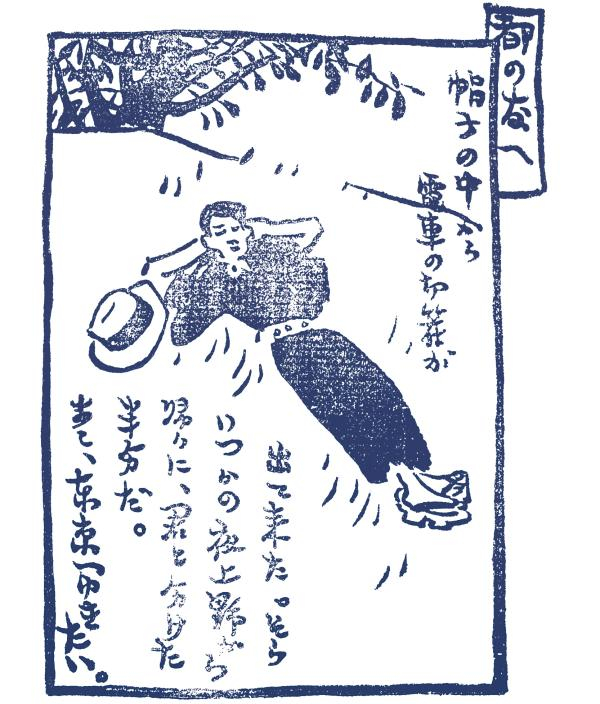 都の友へ
帽子の中から
電車の切符が
出て来た。そら
いつかの夜上野から
帰りに、君と分けた
半分だ。
東京へゆきたい。